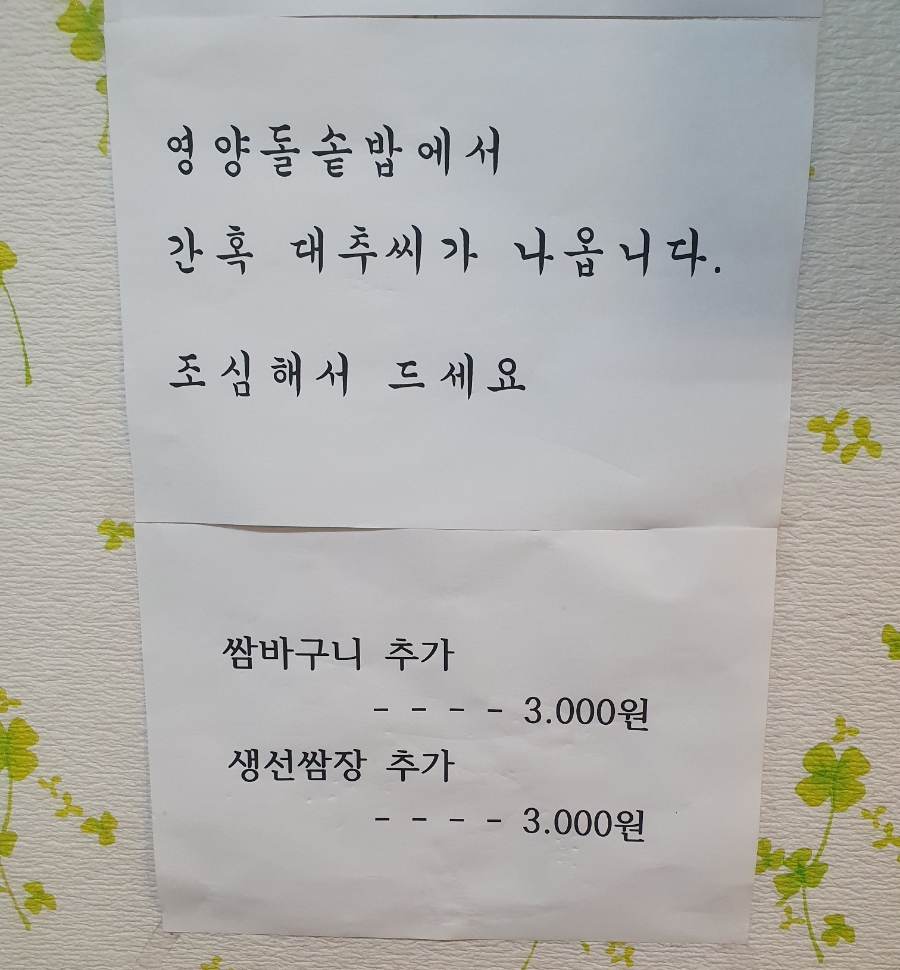 영양돌솥밥에서
간혹 대추씨가 나옵니다.
조심해서 드세요
쌈바구니 추가
- - - - 3.000원
생선쌈장 추가
- - - - 3.000원